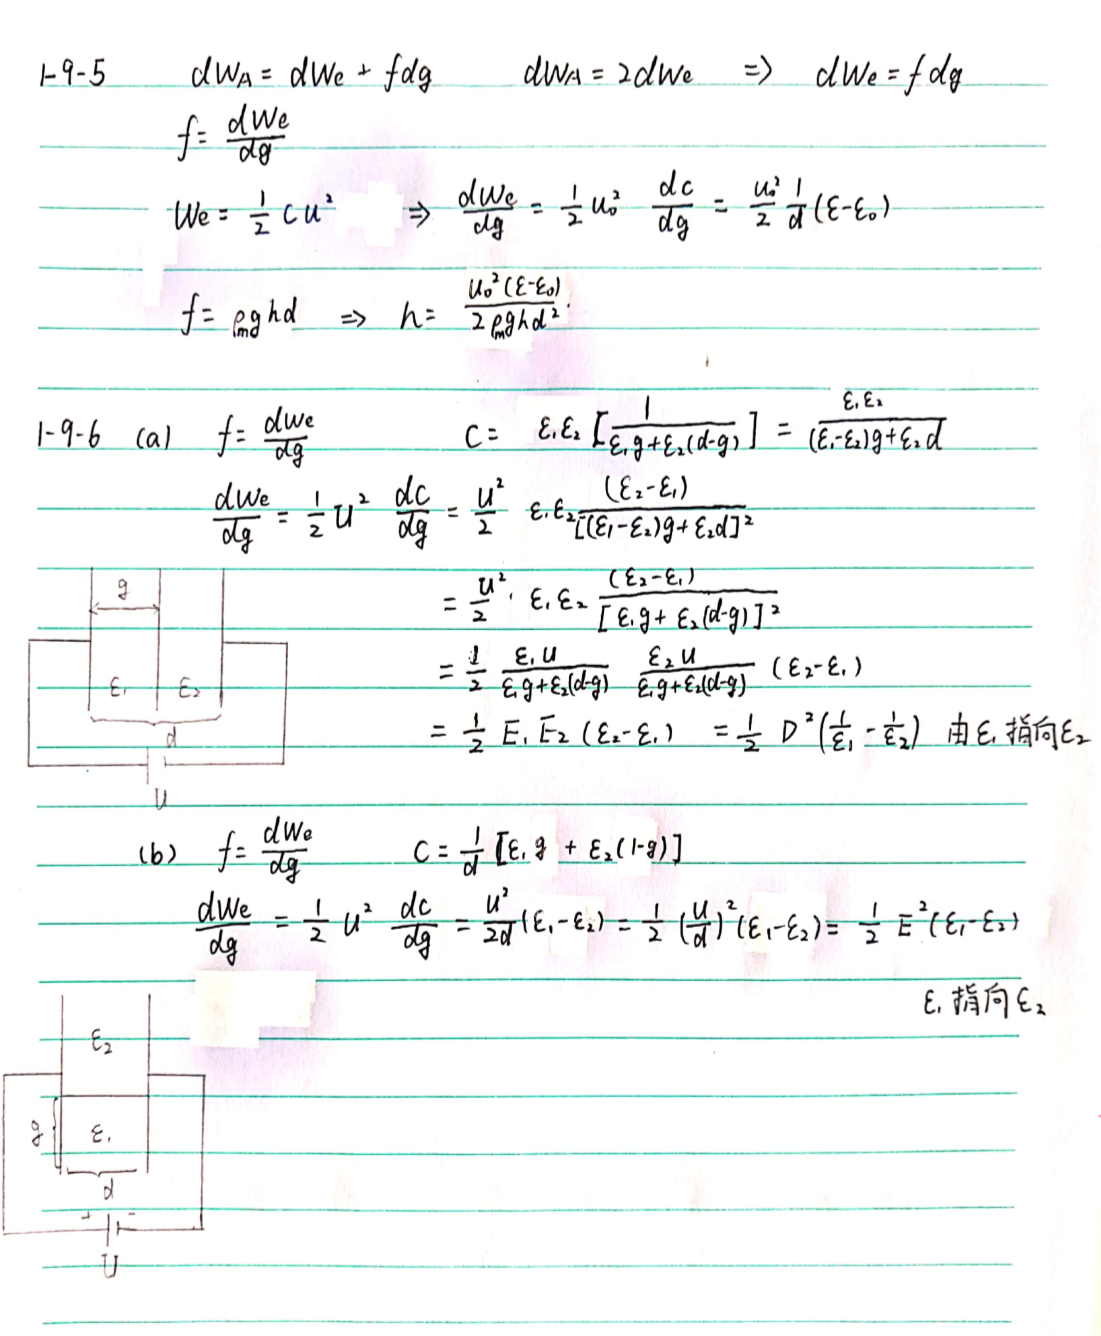 1-9-5 dW_A = dWe + fdg dW_A = 2dWe => dWe = fdg
f = dWe/dg
We = 1/2 CU² => dWe/dg = 1/2 U₀² dc/dg = U₀²/2 1/d (ε-ε₀)
f = ρ_m g h d => h = U₀²(ε-ε₀)/2ρ_m g h d²
1-9-6 (a) f = dWe/dg C = ε₁ε₂ [1/ε₁g+ε₂(d-g)] = ε₁ε₂/(ε₁-ε₂)g+ε₂d
dWe/dg = 1/2 U² dc/dg = U²/2 ε₁ε₂ (ε₂-ε₁)/[(ε₁-ε₂)g+ε₂d]²
= U²/2 · ε₁ε₂ (ε₂-ε₁)/[ε₁g+ε₂(d-g)]²
= 1/2 ε₁U/ε₁g+ε₂(d-g) ε₂U/ε₁g+ε₂(d-g) (ε₂-ε₁)
= 1/2 E₁E₂(ε₂-ε₁) = 1/2 D²(1/ε₁ - 1/ε₂) 由ε₁指向ε₂
g
ε₁ ε₂
d
U
(b) f = dWe/dg C = 1/d [ε₁g + ε₂(1-g)]
dWe/dg = 1/2 U² dc/dg = U²/2d (ε₁-ε₂) = 1/2 (U/d)²(ε₁-ε₂) = 1/2 E²(ε₁-ε₂)
ε₁指向ε₂
ε₂
g ε₁
d
+ -
U